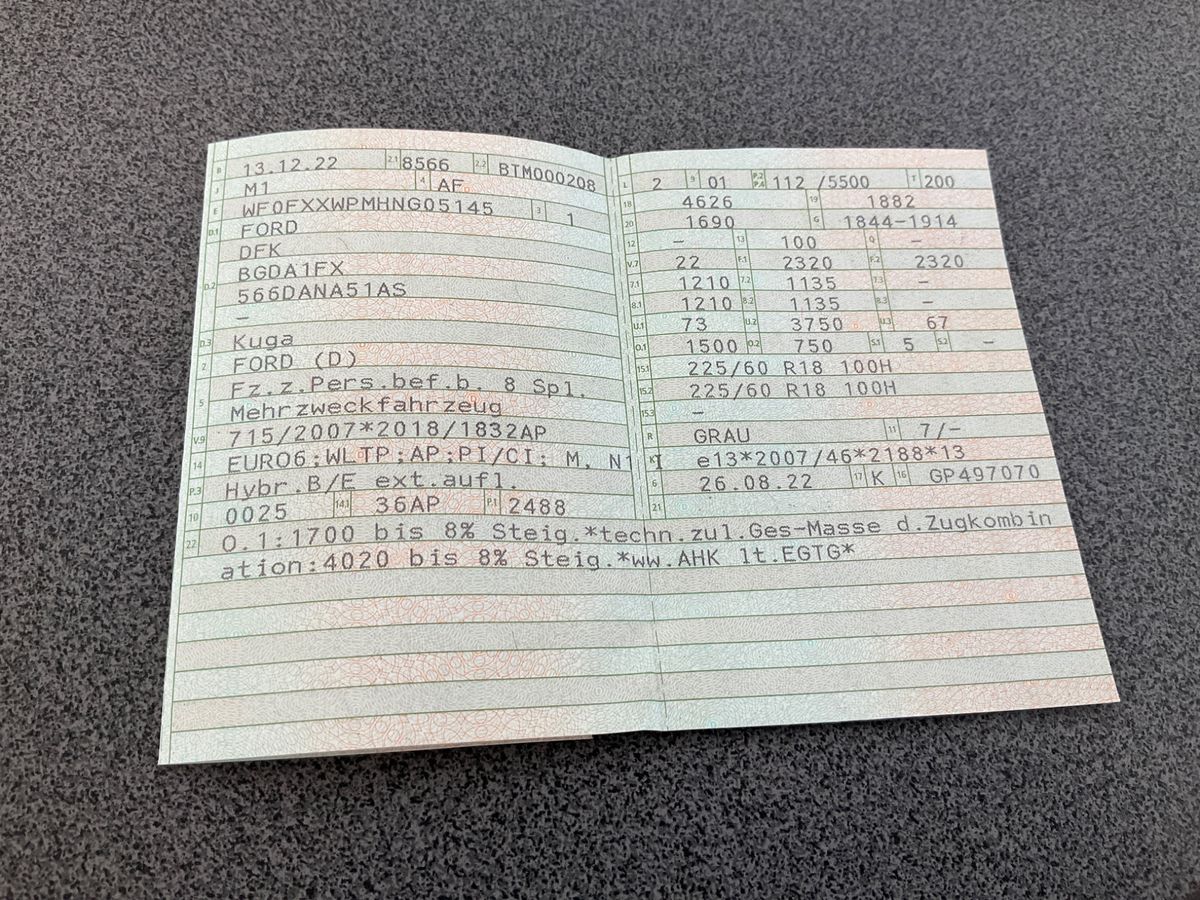 B 13.12.22 2.1 8566 2.2 BTM000208
J M1 4 AF
E WF0FXXWPMHNG05145 3 1
D.1 FORD
DFK
D.2 BGDA1FX
566DANA51AS
–
D.3 Kuga
2 FORD (D)
5 Fz.z.Pers.bef.b. 8 Spl.
Mehrzweckfahrzeug
V.9 715/2007*2018/1832AP
14 EURO6;WLTP;AP;PI/CI; M, N1 I
P.3 Hybr.B/E ext.aufl.
10 0025 14.1 36AP P.1 2488
L 2 9 01 P.2 P.4 112 /5500 T 200
18 4626 19 1882
20 1690 G 1844-1914
12 – 13 100 Q –
V.7 22 F.1 2320 F.2 2320
7.1 1210 7.2 1135 7.3 –
8.1 1210 8.2 1135 8.3 –
U.1 73 U.2 3750 U.3 67
O.1 1500 O.2 750 S.1 5 S.2 –
15.1 225/60 R18 100H
15.2 225/60 R18 100H
15.3 –
R GRAU 11 7/–
K e13*2007/46*2188*13
6 26.08.22 17 K 16 GP497070
21
22 O.1:1700 bis 8% Steig.*techn.zul.Ges-Masse d.Zugkombin
ation:4020 bis 8% Steig.*ww.AHK lt.EGTG*